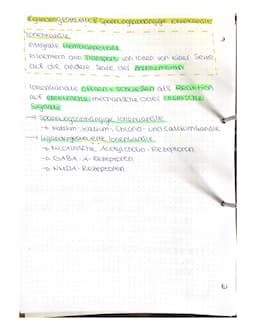 Ligandengesteuerte & Spannungsabhängige Ionenkanäle
Ionenkanäle
integrale Membranproteine
erleichtern den Transport von Ionen von einer Seite
auf die andere Seite der
Ionenkanäle öffnen & schließen als Reaktion
auf elektrische, mechanische oder chemische
Signale
→ Spannungsabhängige Ionenkanäle
→ Natrium-, Kalium-, Chlorid- und Calciumkanäle
→ Ligandengesteuerte Ionenkanäle
→ Nicotinische Acetylcholin-Rezeptoren
→ GABA-A-Rezeptoren
→ NMDA-Rezeptoren